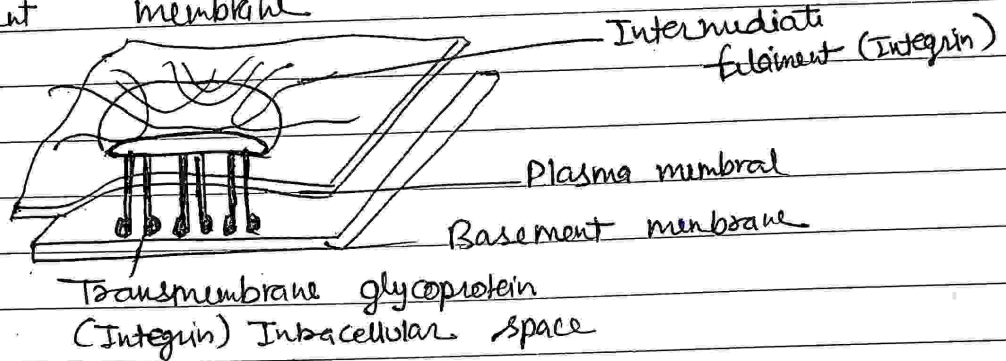 nt membrane
Intermediati
filament (Integrin)
Plasma membral
Basement menbrane
Transmembrane glycoprotein
(Integrin) Intracellular space